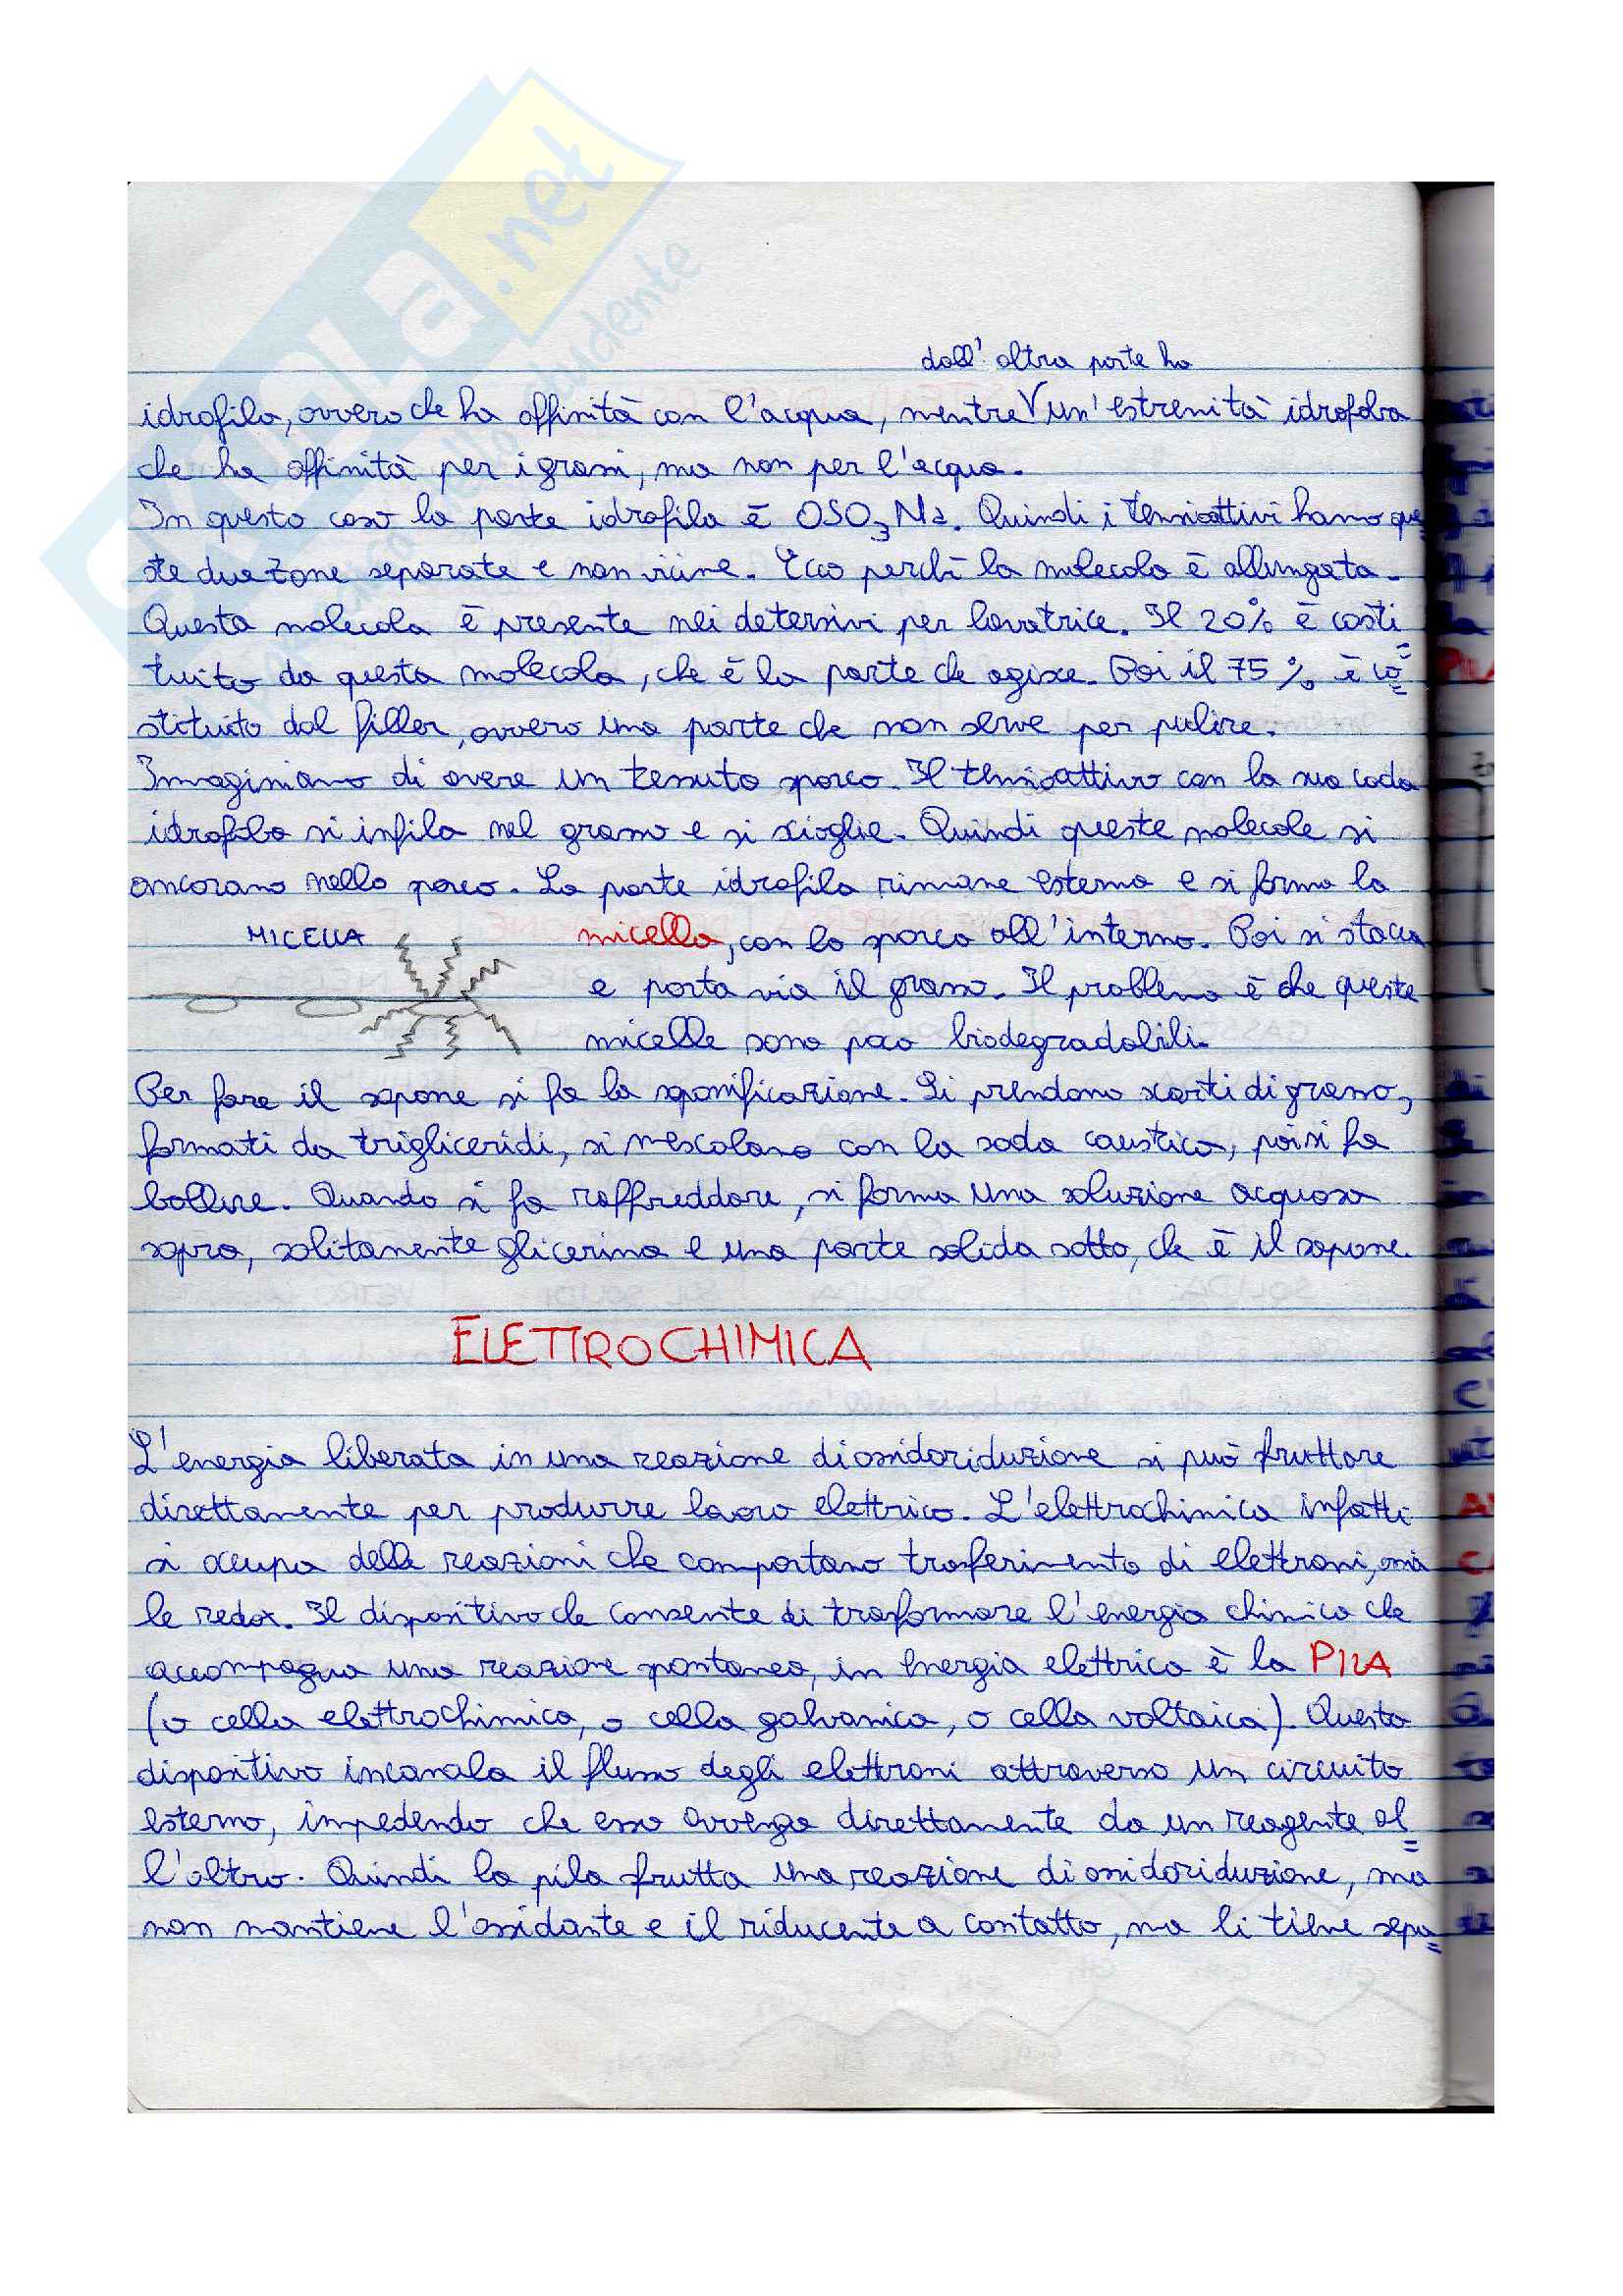 dall'altra parte ha
idrofila, ovvero che ha affinità con l'acqua, mentre V un'estremità idrofoba
che ha affinità per i grassi, ma non per l'acqua.
In questo caso la parte idrofila è OSO3Na. Quindi i tensioattivi hanno que
ste due zone separate e non vicine. Ecco perchè la molecola è allungata.
Questa molecola è presente nei detersivi per lavatrice. Il 20% è costi=
tuito da questa molecola, che è la parte che agisce. Poi il 75% è co=
stituito dal filler, ovvero una parte che non serve per pulire.
Immaginiamo di avere un tessuto sporco. Il tensioattivo con la sua coda
idrofoba si infila nel grasso e si scioglie. Quindi queste molecole si
ancorano nello sporco. La parte idrofila rimane esterna e si forma la
MICELLA
micella, con lo sporco all'interno. Poi si stacca
e porta via il grasso. Il problema è che queste
micelle sono poco biodegradabili.
Per fare il sapone si fa la saponificazione. Si prendono scarti di grasso,
formati da trigliceridi, si mescolano con la soda caustica, poi si fa
bollire. Quando si fa raffreddare, si forma una soluzione acquosa
sopra, solitamente glicerina e una parte solida sotto, che è il sapone.
ELETTROCHIMICA
L'energia liberata in una reazione di ossidoriduzione si può sfruttare
direttamente per produrre lavoro elettrico. L'elettrochimica infatti
si occupa delle reazioni che comportano trasferimento di elettroni, ossia
le redox. Il dispositivo che consente di trasformare l'energia chimica che
accompagna una reazione spontanea, in energia elettrica è la PILA
(o cella elettrochimica, o cella galvanica, o cella voltaica). Questo
dispositivo incanala il flusso degli elettroni attraverso un circuito
esterno, impedendo che esso avvenga direttamente da un reagente al=
l'altro. Quindi la pila sfrutta una reazione di ossidoriduzione, ma
non mantiene l'ossidante e il riducente a contatto, ma li tiene sepa=